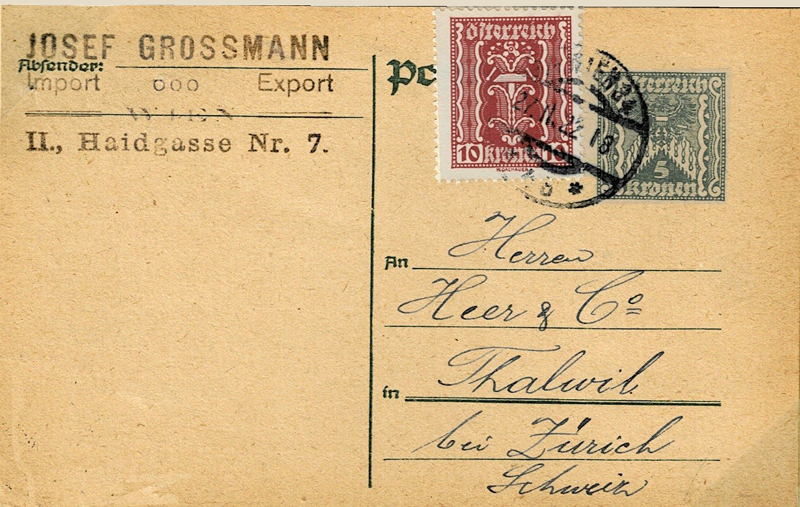 JOSEF GROSSMANN
Absender:
Import ooo Export
WIEN
II., Haidgasse Nr. 7.
österreich
10 kronen 10
österreich
5
kronen
27.II.22
An Herren
Heer & Co
in Thalwil
bei Zürich
Schweiz